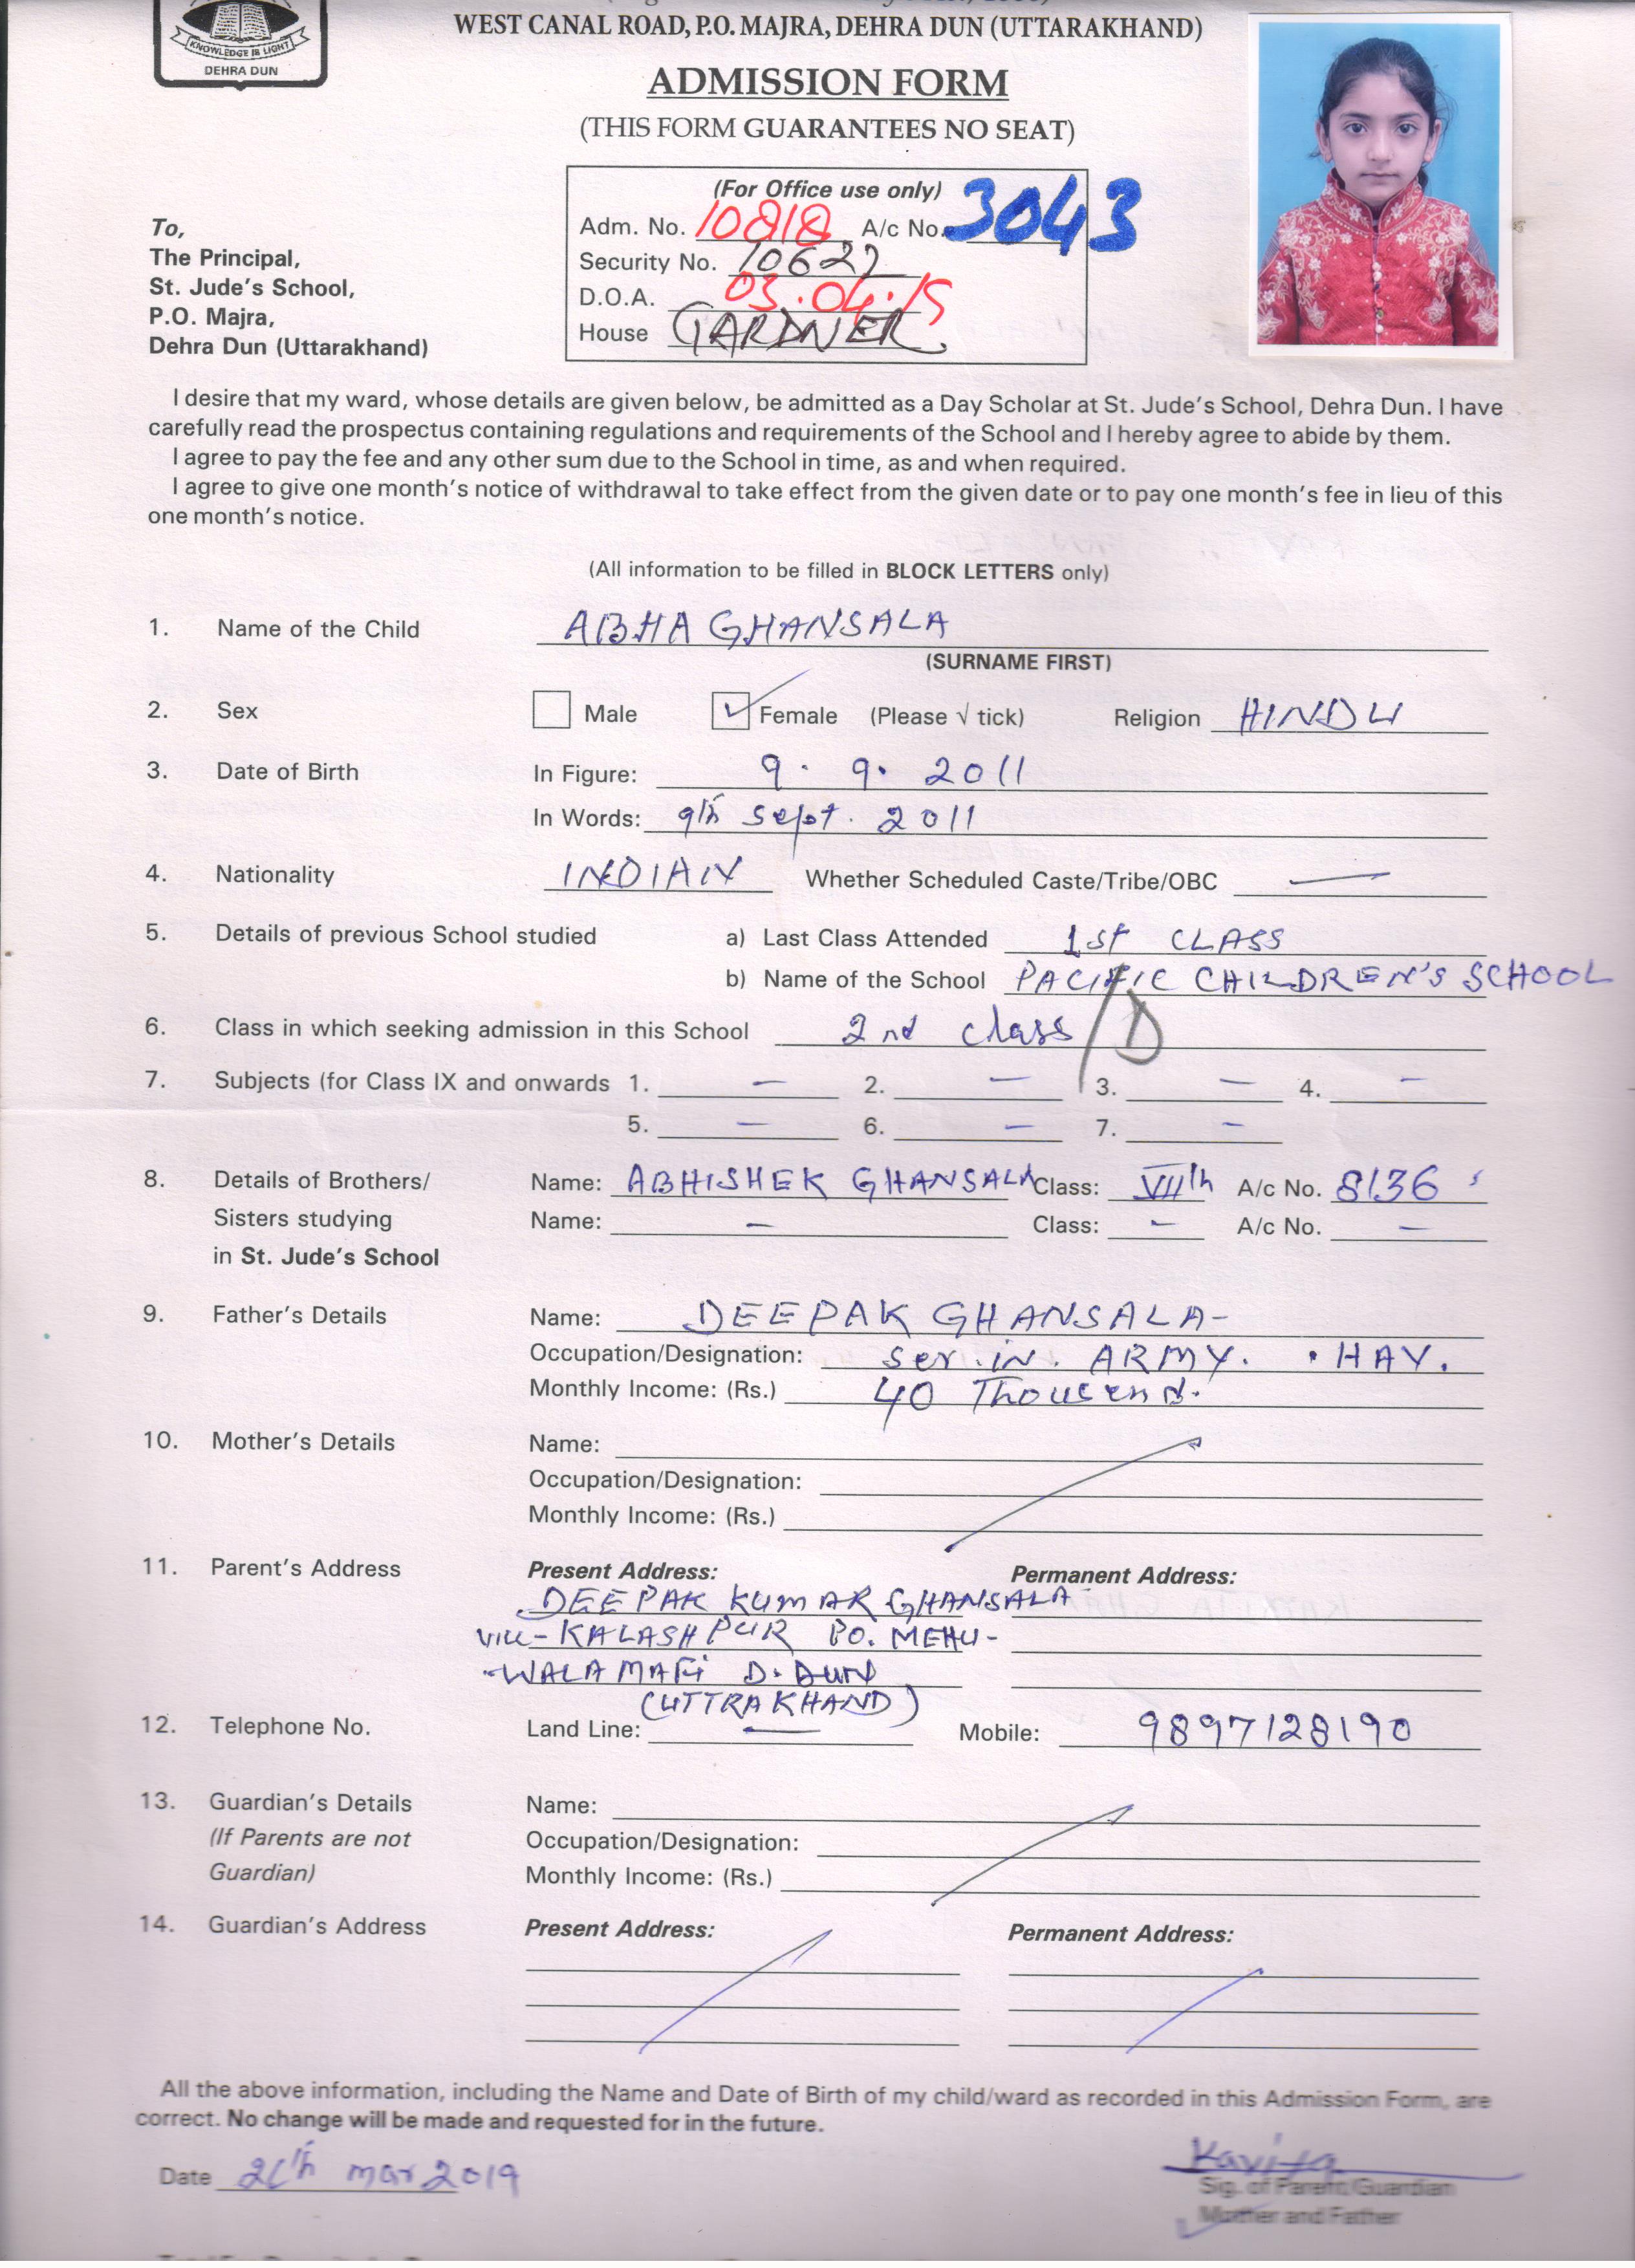 KNOWLEDGE IS LIGHT
DEHRA DUN
WEST CANAL ROAD, P.O. MAJRA, DEHRA DUN (UTTARAKHAND)
ADMISSION FORM
(THIS FORM GUARANTEES NO SEAT)
(For Office use only)
Adm. No. 10818 A/c No. 3043
Security No. 10627
D.O.A. 03.04.15
House GARDNER
To,
The Principal,
St. Jude's School,
P.O. Majra,
Dehra Dun (Uttarakhand)
I desire that my ward, whose details are given below, be admitted as a Day Scholar at St. Jude's School, Dehra Dun. I have
carefully read the prospectus containing regulations and requirements of the School and I hereby agree to abide by them.
I agree to pay the fee and any other sum due to the School in time, as and when required.
I agree to give one month's notice of withdrawal to take effect from the given date or to pay one month's fee in lieu of this
one month's notice.
(All information to be filled in BLOCK LETTERS only)
1. Name of the Child ABHA GHANSALA
(SURNAME FIRST)
2. Sex Male Female (Please √ tick) Religion HINDU
3. Date of Birth In Figure: 9. 9. 2011
In Words: 9th Sept. 2011
4. Nationality INDIAN Whether Scheduled Caste/Tribe/OBC —
5. Details of previous School studied a) Last Class Attended 1st CLASS
b) Name of the School PACIFIC CHILDREN'S SCHOOL
6. Class in which seeking admission in this School 2nd class / D
7. Subjects (for Class IX and onwards 1. — 2. — 3. — 4. —
5. — 6. — 7. —
8. Details of Brothers/ Name: ABHISHEK GHANSALA Class: VIIth A/c No. 8136
Sisters studying Name: — Class: — A/c No. —
in St. Jude's School
9. Father's Details Name: DEEPAK GHANSALA-
Occupation/Designation: Ser. in. ARMY. . HAV.
Monthly Income: (Rs.) 40 Thousend.
10. Mother's Details Name:
Occupation/Designation:
Monthly Income: (Rs.)
11. Parent's Address Present Address: Permanent Address:
DEEPAK KUMAR GHANSALA
Vill- KALASHPUR PO. MEHU-
-WALA MAFi D. DUN
(UTTRAKHAND)
12. Telephone No. Land Line: — Mobile: 9897128190
13. Guardian's Details Name:
(If Parents are not Occupation/Designation:
Guardian) Monthly Income: (Rs.)
14. Guardian's Address Present Address: Permanent Address:
All the above information, including the Name and Date of Birth of my child/ward as recorded in this Admission Form, are
correct. No change will be made and requested for in the future.
Date mar 2019 Kavita
Sig. of Parent/Guardian
Mother and Father